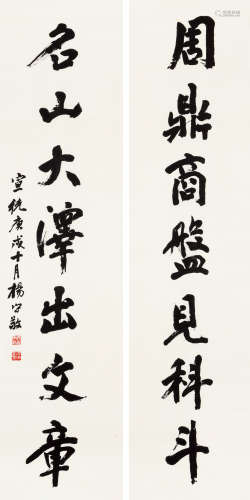 周鼎商盤見科斗
名山大澤出文章
宣統庚戌十月楊守敬